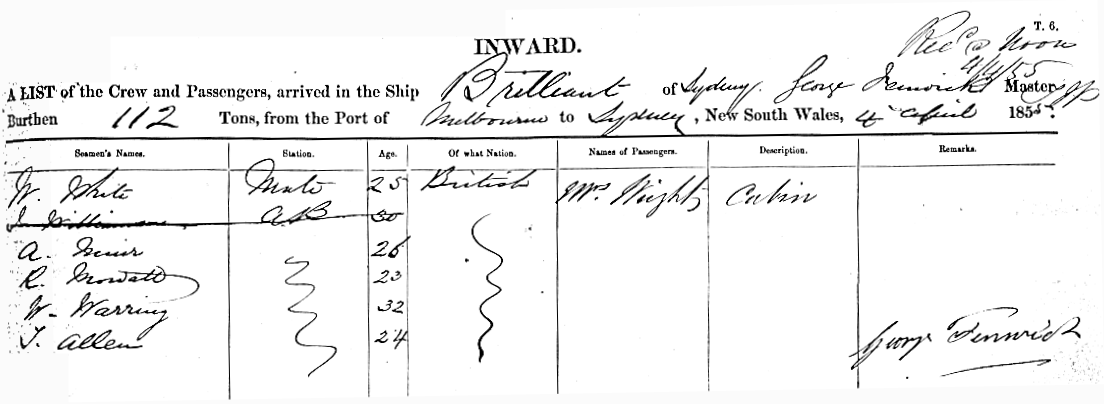 T. 6.
INWARD.
Rec'd Noon
4/4/55
A LIST of the Crew and Passengers, arrived in the Ship Brilliant of Sydney. George Fenwick Master
Burthen 112 Tons, from the Port of Melbourne to Sydney, New South Wales, 4 April 1855.
Seamen's Names. Station. Age. Of what Nation. Names of Passengers. Description. Remarks.
W. White Mate 25 British Mrs Wright Cabin
J. Williamson AB 30
A. Muir 26
R. Mowatt 23
W. Warring 32
T. Allen 24
George Fenwick